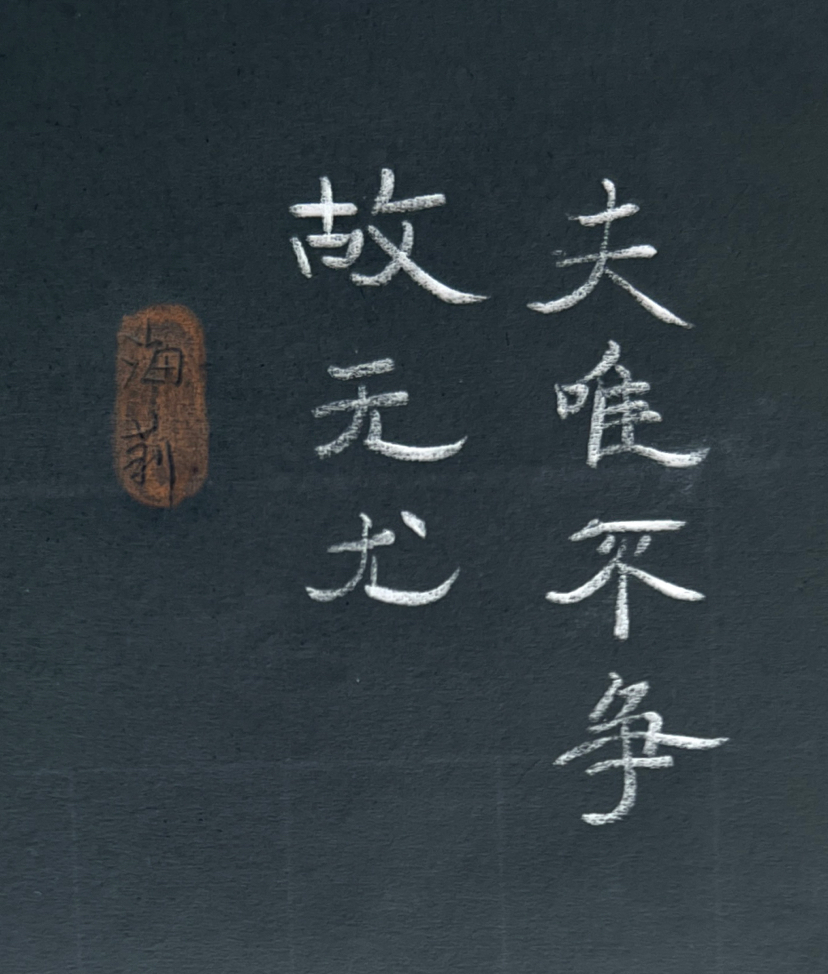 夫唯不争
故无尤
海莉